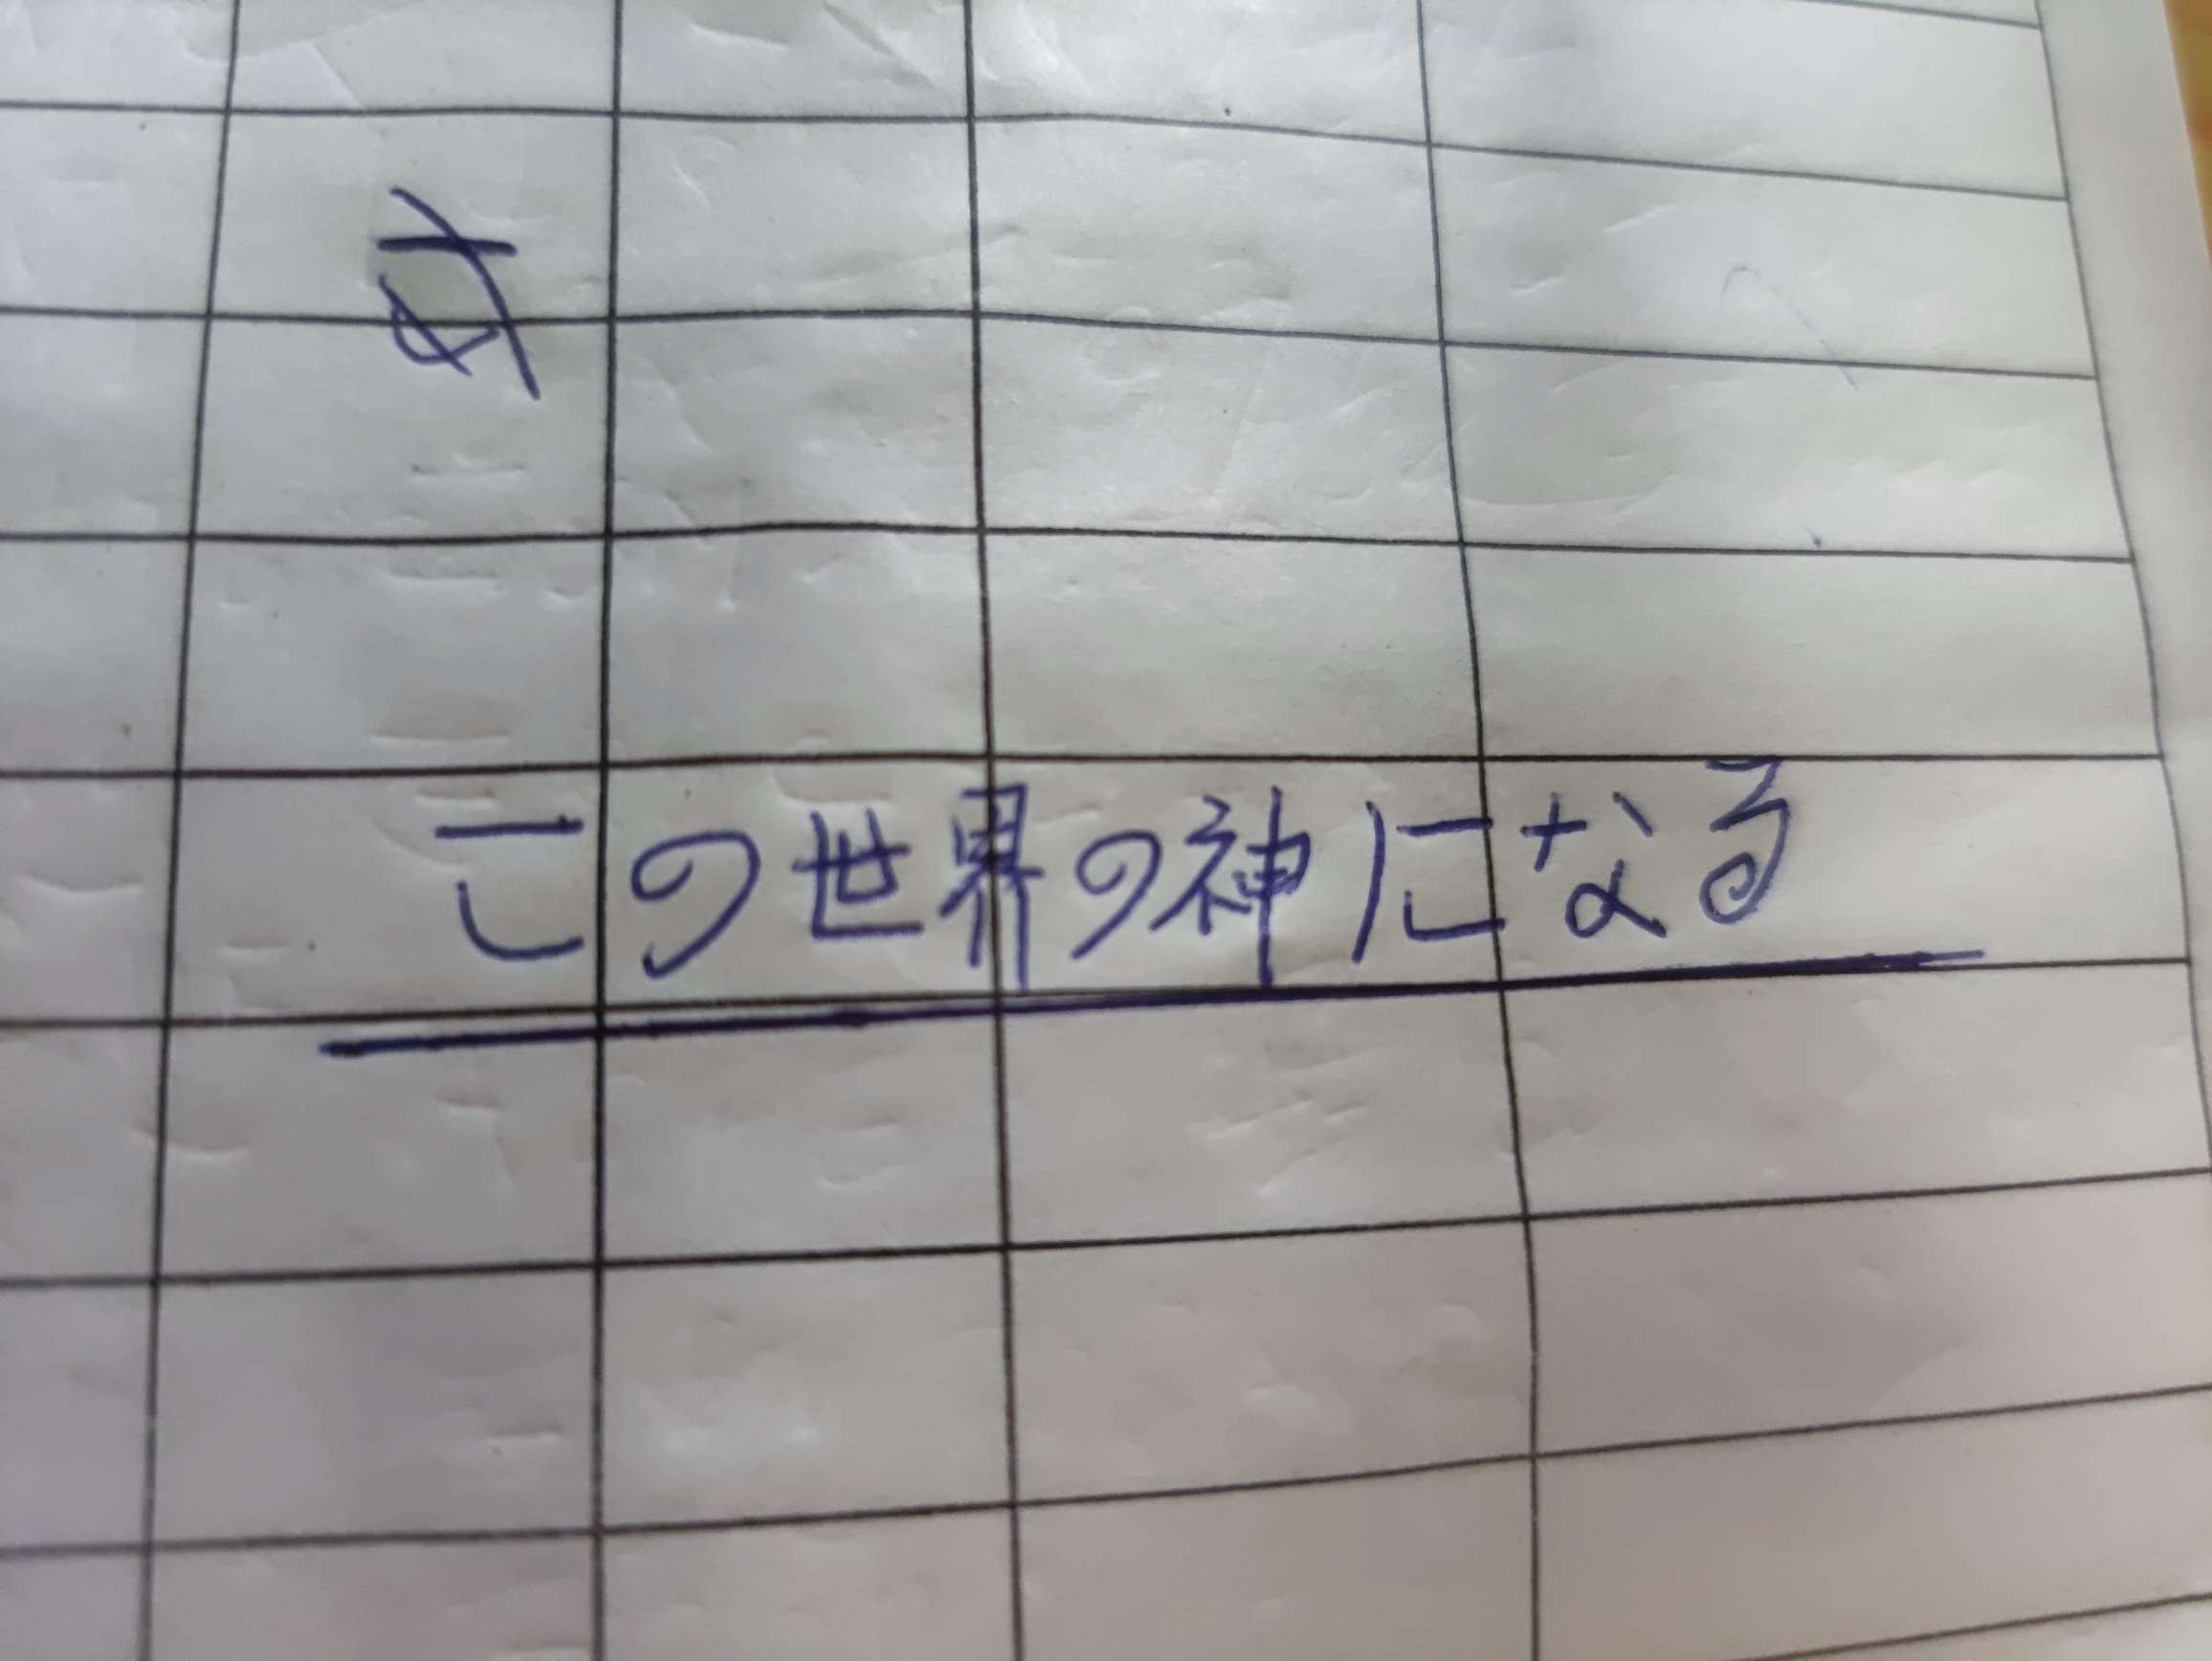 この世界の神になる